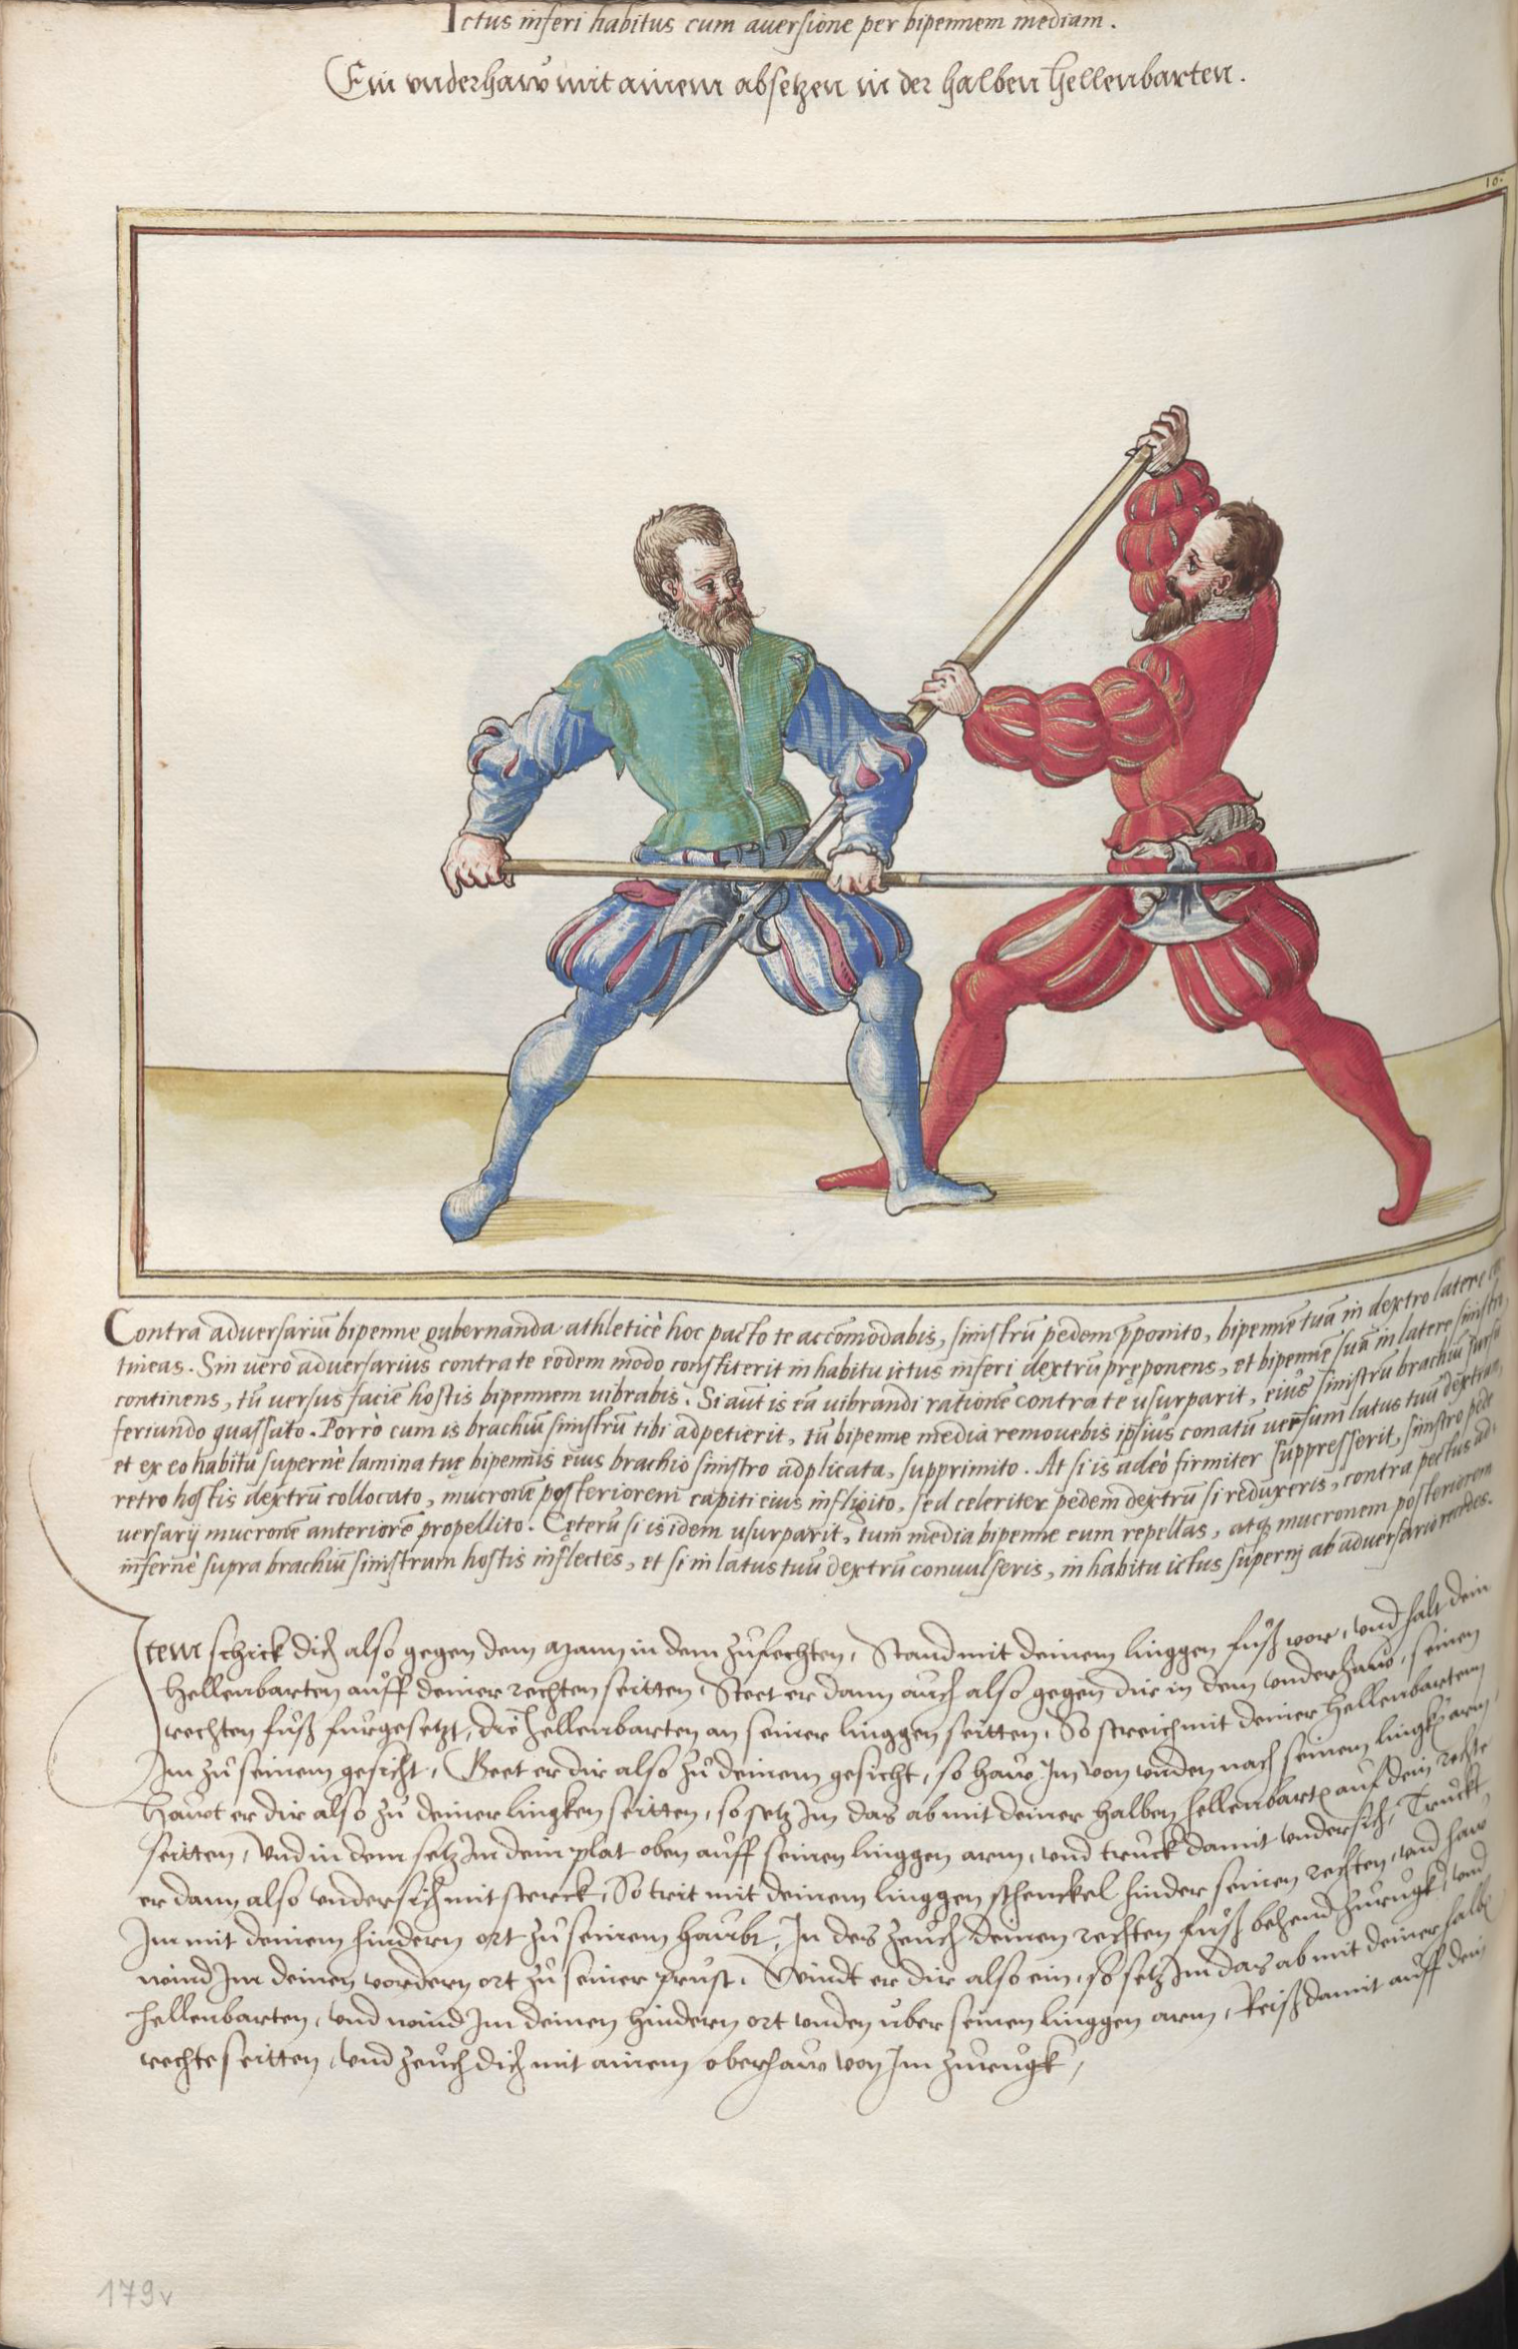 Ictus inferi habitus cum auersione per bipennem mediam.
Ein vnderhaw mit ainem absetzen in der halben hellenbarten.
10.
Contra aduersariũ bipenne gubernanda athleticè hoc pacto te accõmodabis, sinistrũ pedem p̃ponito, bipennẽ tuã in dextro latere
tineas. Sin uerò aduersarius contra te eodem modo constiterit in habitu ictus inferi dextrũ pręponens, et bipennẽ suã in latere sinistro
continens, tũ uersus faciẽ hostis bipennem uibrabis. Si aũt is eã uibrandi rationẽ contra te usurparit, eius sinistrũ brachiũ sursũ
feriundo quassato. Porrò cum is brachiũ sinistrũ tibi adpetierit, tũ bipenne media remouebis ipsius conatũ uersum latus tuũ dextrũ,
et ex eo habitu supernè lamina tuę bipennis eius brachio sinistro adplicata, supprimito. At si is adeò firmiter suppresserit, sinistro pede
retro hostis dextrũ collocato, mucronẽ posteriorem capiti eius infligito, sed celeriter pedem dextrũ si reduxeris, contra pectus ad-
uersarij mucronẽ anteriorẽ propellito. Cęterũ si is idem usurparit, tum media bipenne eum repellas, atq̃ mucronem posteriorem
infernè supra brachiũ sinistrum hostis inflectes, et si in latus tuũ dextrũ conuulseris, in habitu ictus superni ab aduersario recedes.
Item schick dich also gegen dem Mann in dem zůfechten, Stand mit deinem linggen fůß vor, vnd halt dein
hellenbarten auff deiner rechten seitten, Steet er dann auch also gegen dir in dem vnderhaw, seinen
rechten fůß furgesetzt, die hellenbarten an seiner linggen seitten, So streich mit deiner hellenbarten
Im zů seinem gesicht, Geet er dir also zů deinem gesicht, so haw Im von vnden nach seinem lingkn arm,
Hawt er dir also zů deiner lingken seitten, so setz Im das ab mit deiner halben hellenbartn auf dein rechte
seitten, Vnd in dem setz Im dein plat oben auff seinen linggen arm, vnd truck damit vndersich, Truckt
er dann also vndersich mit sterck, So trit mit deinem linggen schenckel hinder seinen rechten, vnd haw
Im mit deinem hindern ort zů seinem haubt, In des zeuch deinen rechten fůß behend zurugk, vnd
wind Im deinen vordern ort zů seiner prust. Windt er dir also ein, so setz Im das ab mit deiner halbn
hellenbarten, vnd wind Im deinen hindern ort vnden uber seinen linggen arm, Reiß damit auff dein
rechte seitten, vnd zeuch dich mit ainem oberhaw von Im zurugk,
179v